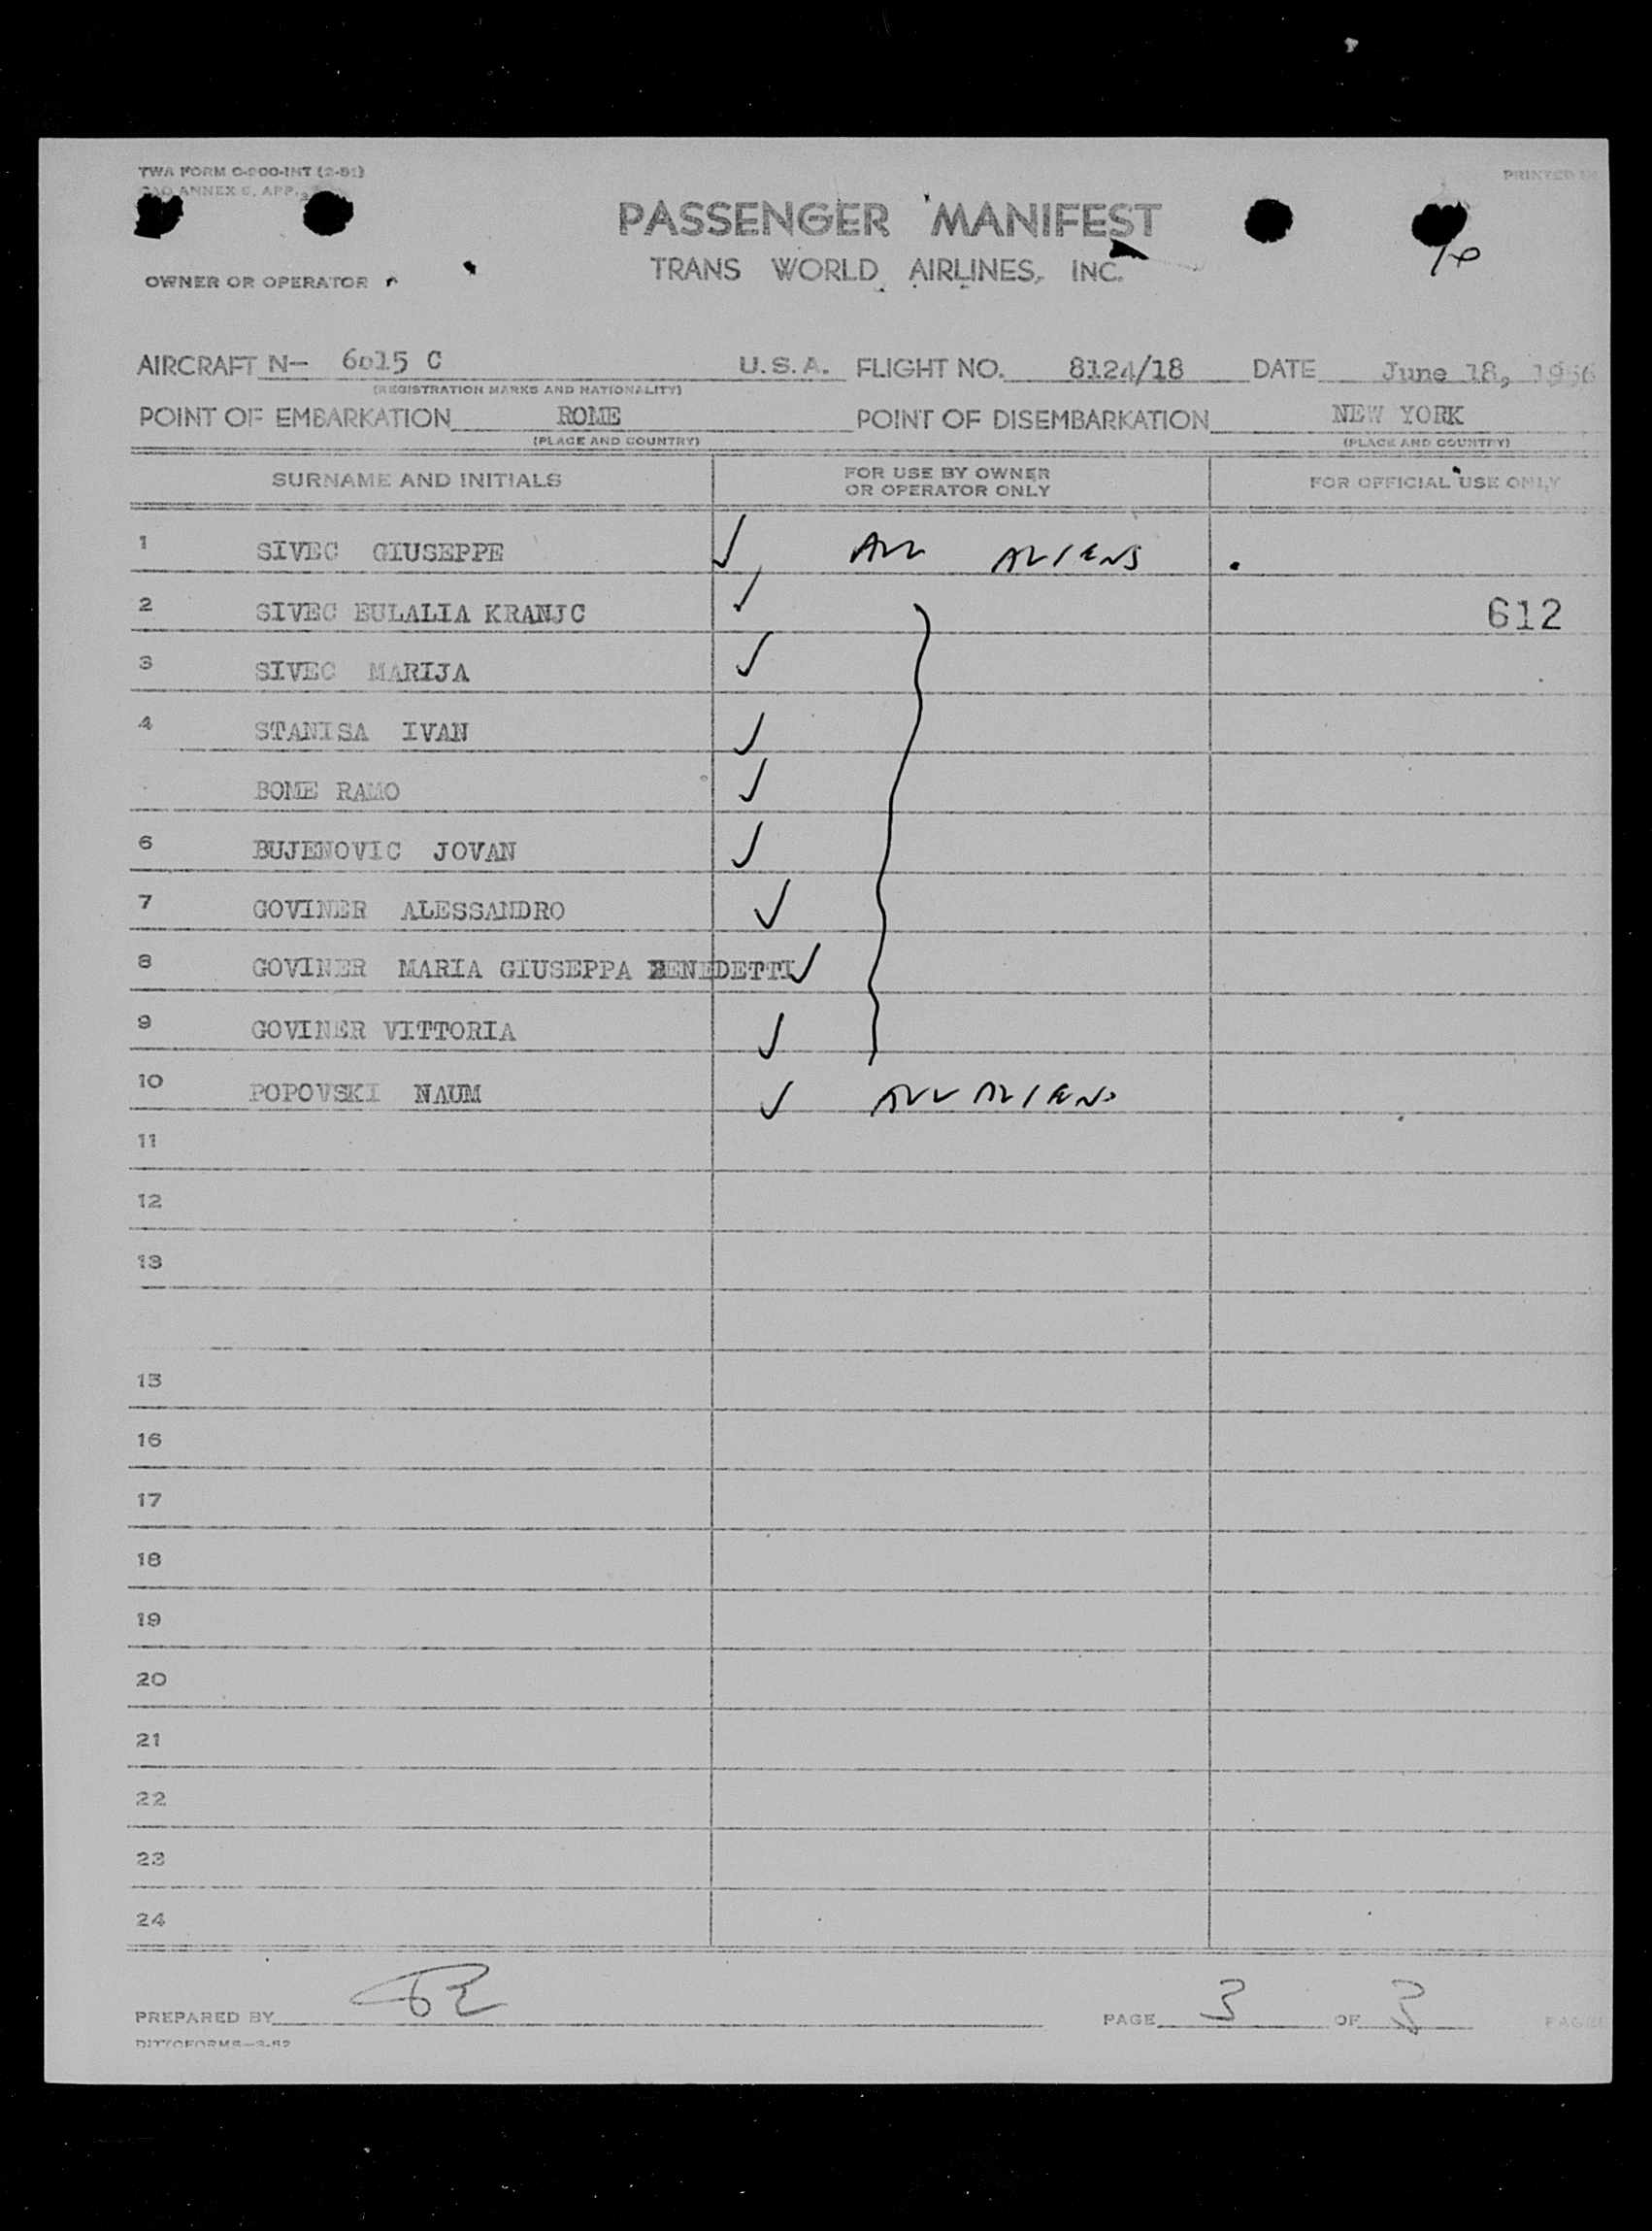 TWA FORM C-200-INT (2-51)
ANNEX 6, APP. 3
PRINTED
PASSENGER MANIFEST
TRANS WORLD AIRLINES, INC.
OWNER OR OPERATOR
AIRCRAFT N— 6015 C U.S.A. FLIGHT NO. 8124/18 DATE June 18, 1956
(REGISTRATION MARKS AND NATIONALITY)
POINT OF EMBARKATION ROME POINT OF DISEMBARKATION NEW YORK
(PLACE AND COUNTRY) (PLACE AND COUNTRY)
SURNAME AND INITIALS FOR USE BY OWNER OR OPERATOR ONLY FOR OFFICIAL USE ONLY
1 SIVEC GIUSEPPE ✓ ALL ALIENS
2 SIVEC EULALIA KRANJC ✓ 612
3 SIVEC MARIJA ✓
4 STANISA IVAN ✓
BOME RAMO ✓
6 BUJENOVIC JOVAN ✓
7 GOVINER ALESSANDRO ✓
8 GOVINER MARIA GIUSEPPA BENEDETTI ✓
9 GOVINER VITTORIA ✓
10 POPOVSKI NAUM ✓ ALL ALIENS
11
12
13
15
16
17
18
19
20
21
22
23
24
PREPARED BY PAGE 3 OF 3 PAGES
DITTOFORMS—3-52